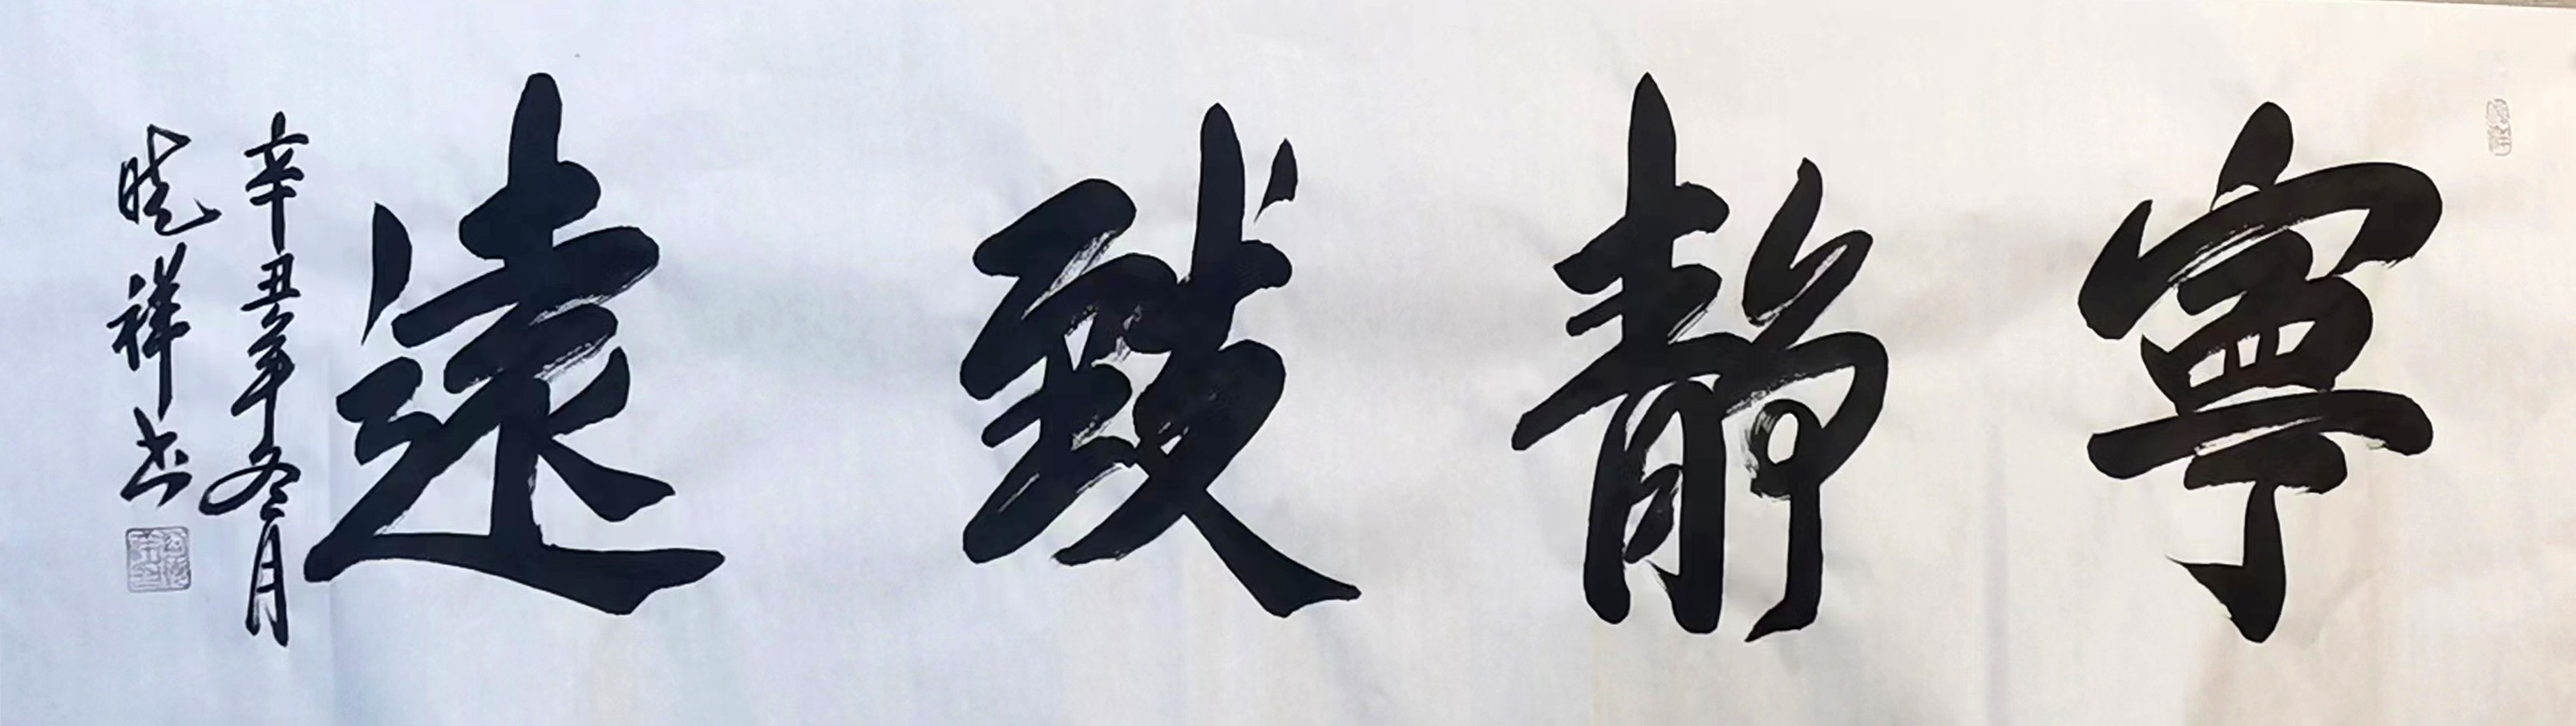 寧靜致遠
辛丑年冬月
曉祥书